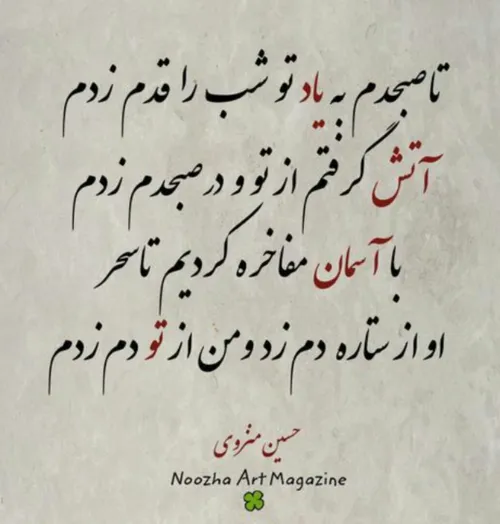 تا صبحدم به یاد تو شب را قدم زدم
آتش گرفتم از تو و در صبحدم زدم
با آسمان مفاخره کردیم تا سحر
او از ستاره دم زد و من از تو دم زدم
حسین منزوی
Noozha Art Magazine